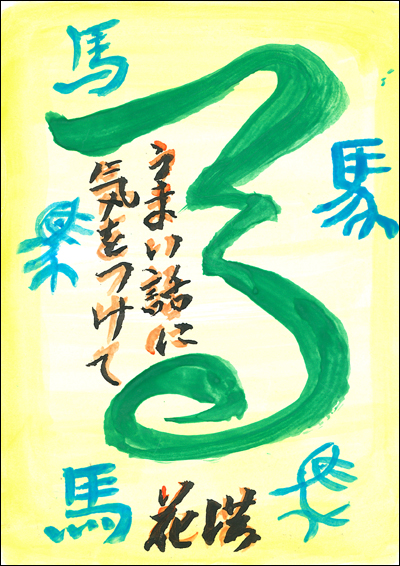 馬
馬
うまい話に
気をつけて
馬
花洪